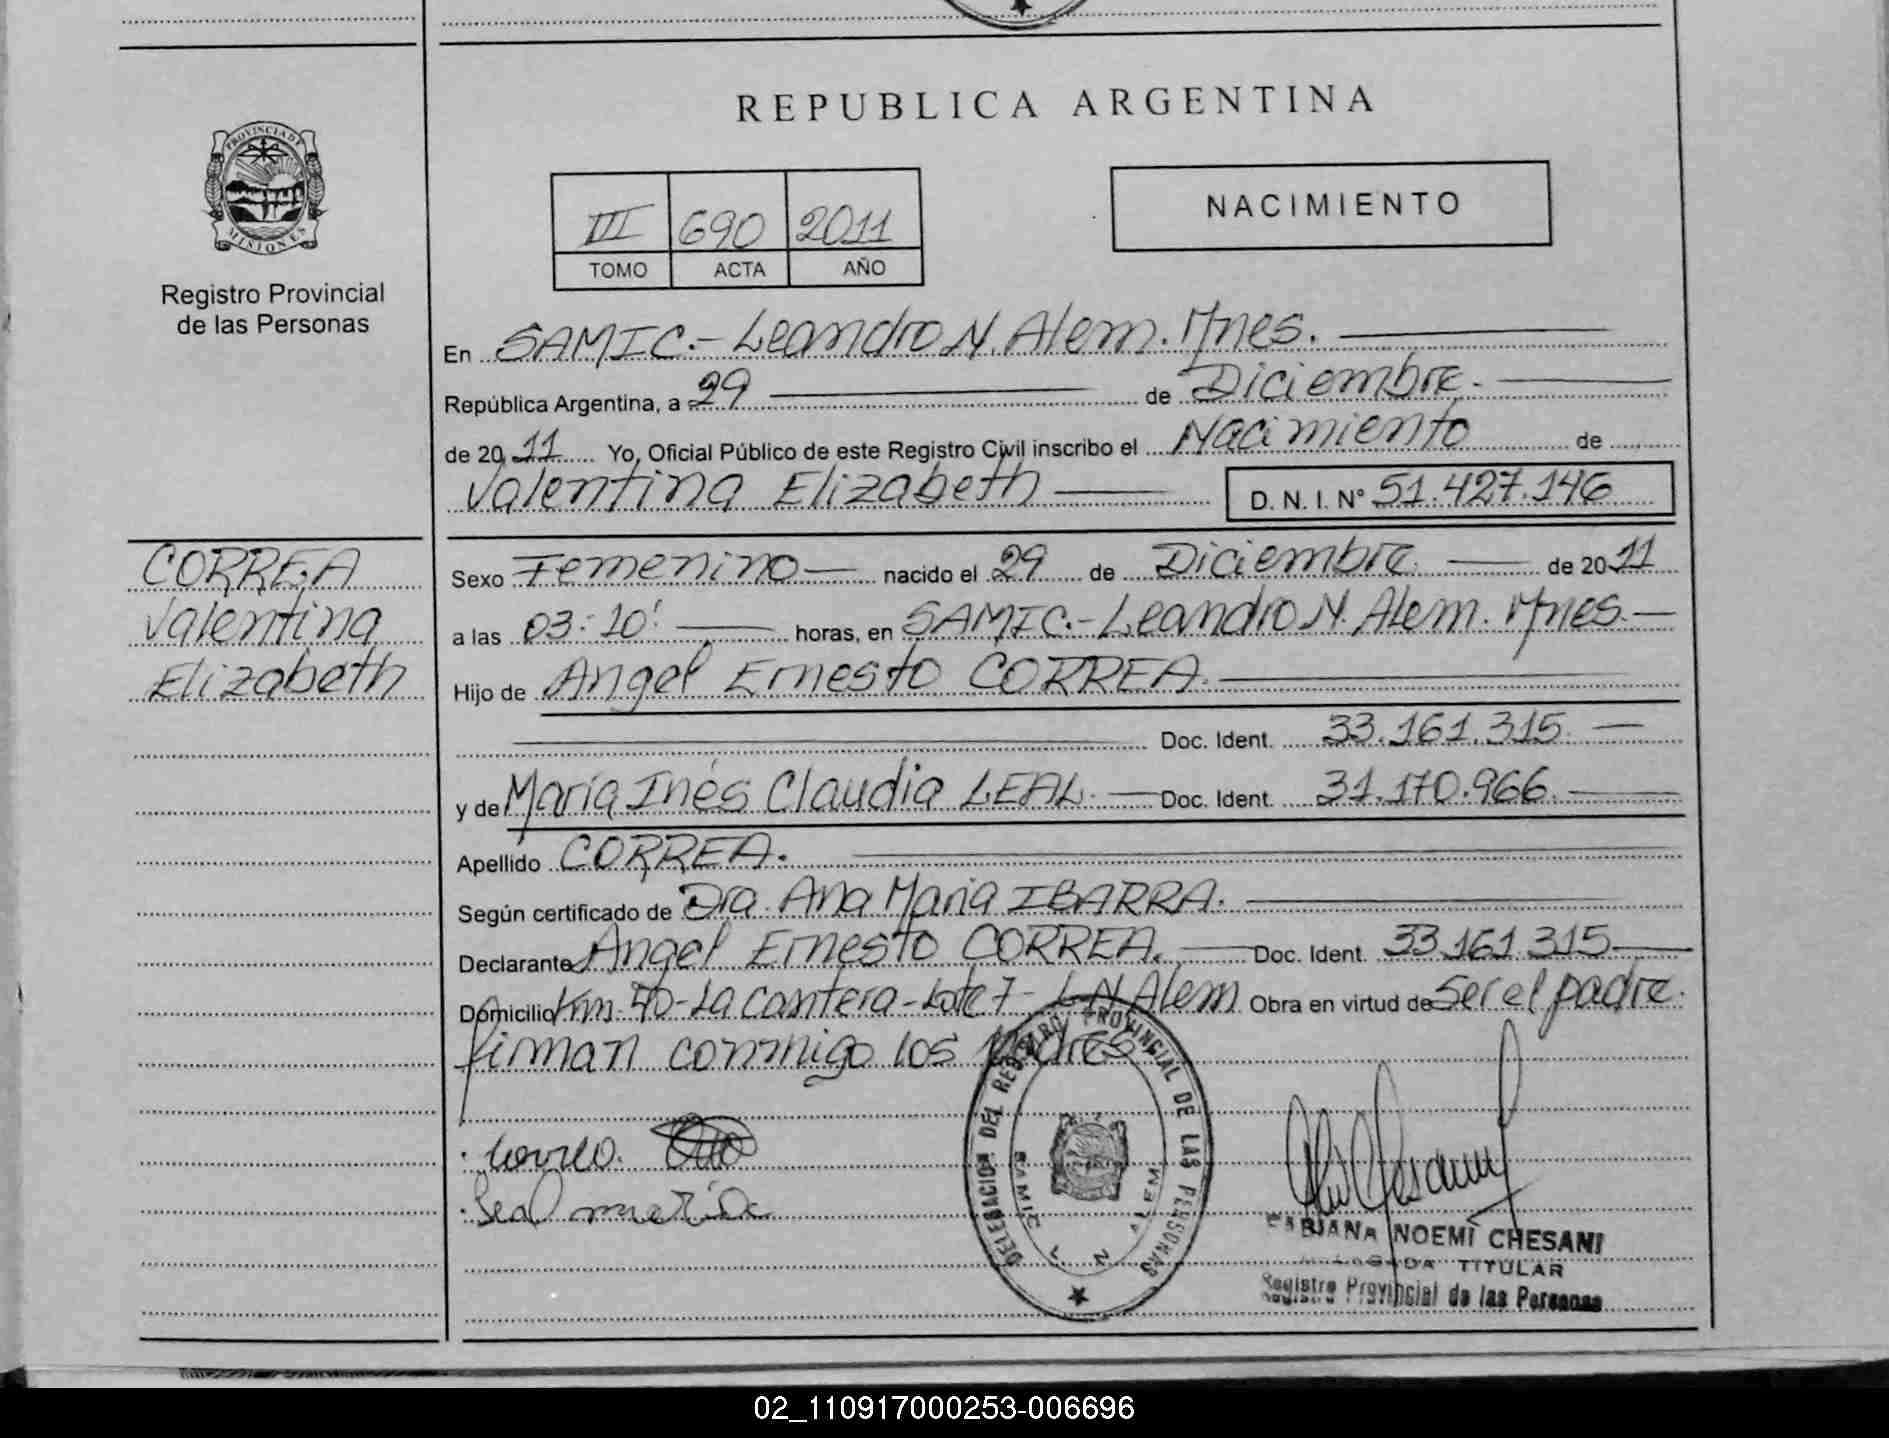 REPUBLICA ARGENTINA
PROVINCIA DE
MISIONES
Registro Provincial
de las Personas
III 690 2011
TOMO ACTA AÑO
NACIMIENTO
En SAMIC.- Leandro N. Alem. Mnes.
República Argentina, a 29 de Diciembre.
de 2011 Yo, Oficial Público de este Registro Civil inscribo el Nacimiento de
Valentina Elizabeth D. N. I. Nº 51.427.146
CORREA
Valentina
Elizabeth
Sexo Femenino nacido el 29 de Diciembre. de 2011
a las 03:10' horas, en SAMIC.- Leandro N. Alem. Mnes.
Hijo de Angel Ernesto CORREA.
Doc. Ident. 33.161.315.
y de María Inés Claudia LEAL. Doc. Ident. 31.170.966.
Apellido CORREA.
Según certificado de Dra. Ana María IBARRA.
Declarante Angel Ernesto CORREA. Doc. Ident. 33.161.315
Domicilio Km. 40-La Cantera-Lote 7- L.N.Alem Obra en virtud de ser el padre.
firman conmigo los padres
DELEGACION DEL REGISTRO PROVINCIAL DE LAS PERSONAS
SAMIC L N ALEM
FABIANA NOEMÍ CHESANI
TITULAR
Registro Provincial de las Personas
02_110917000253-006696